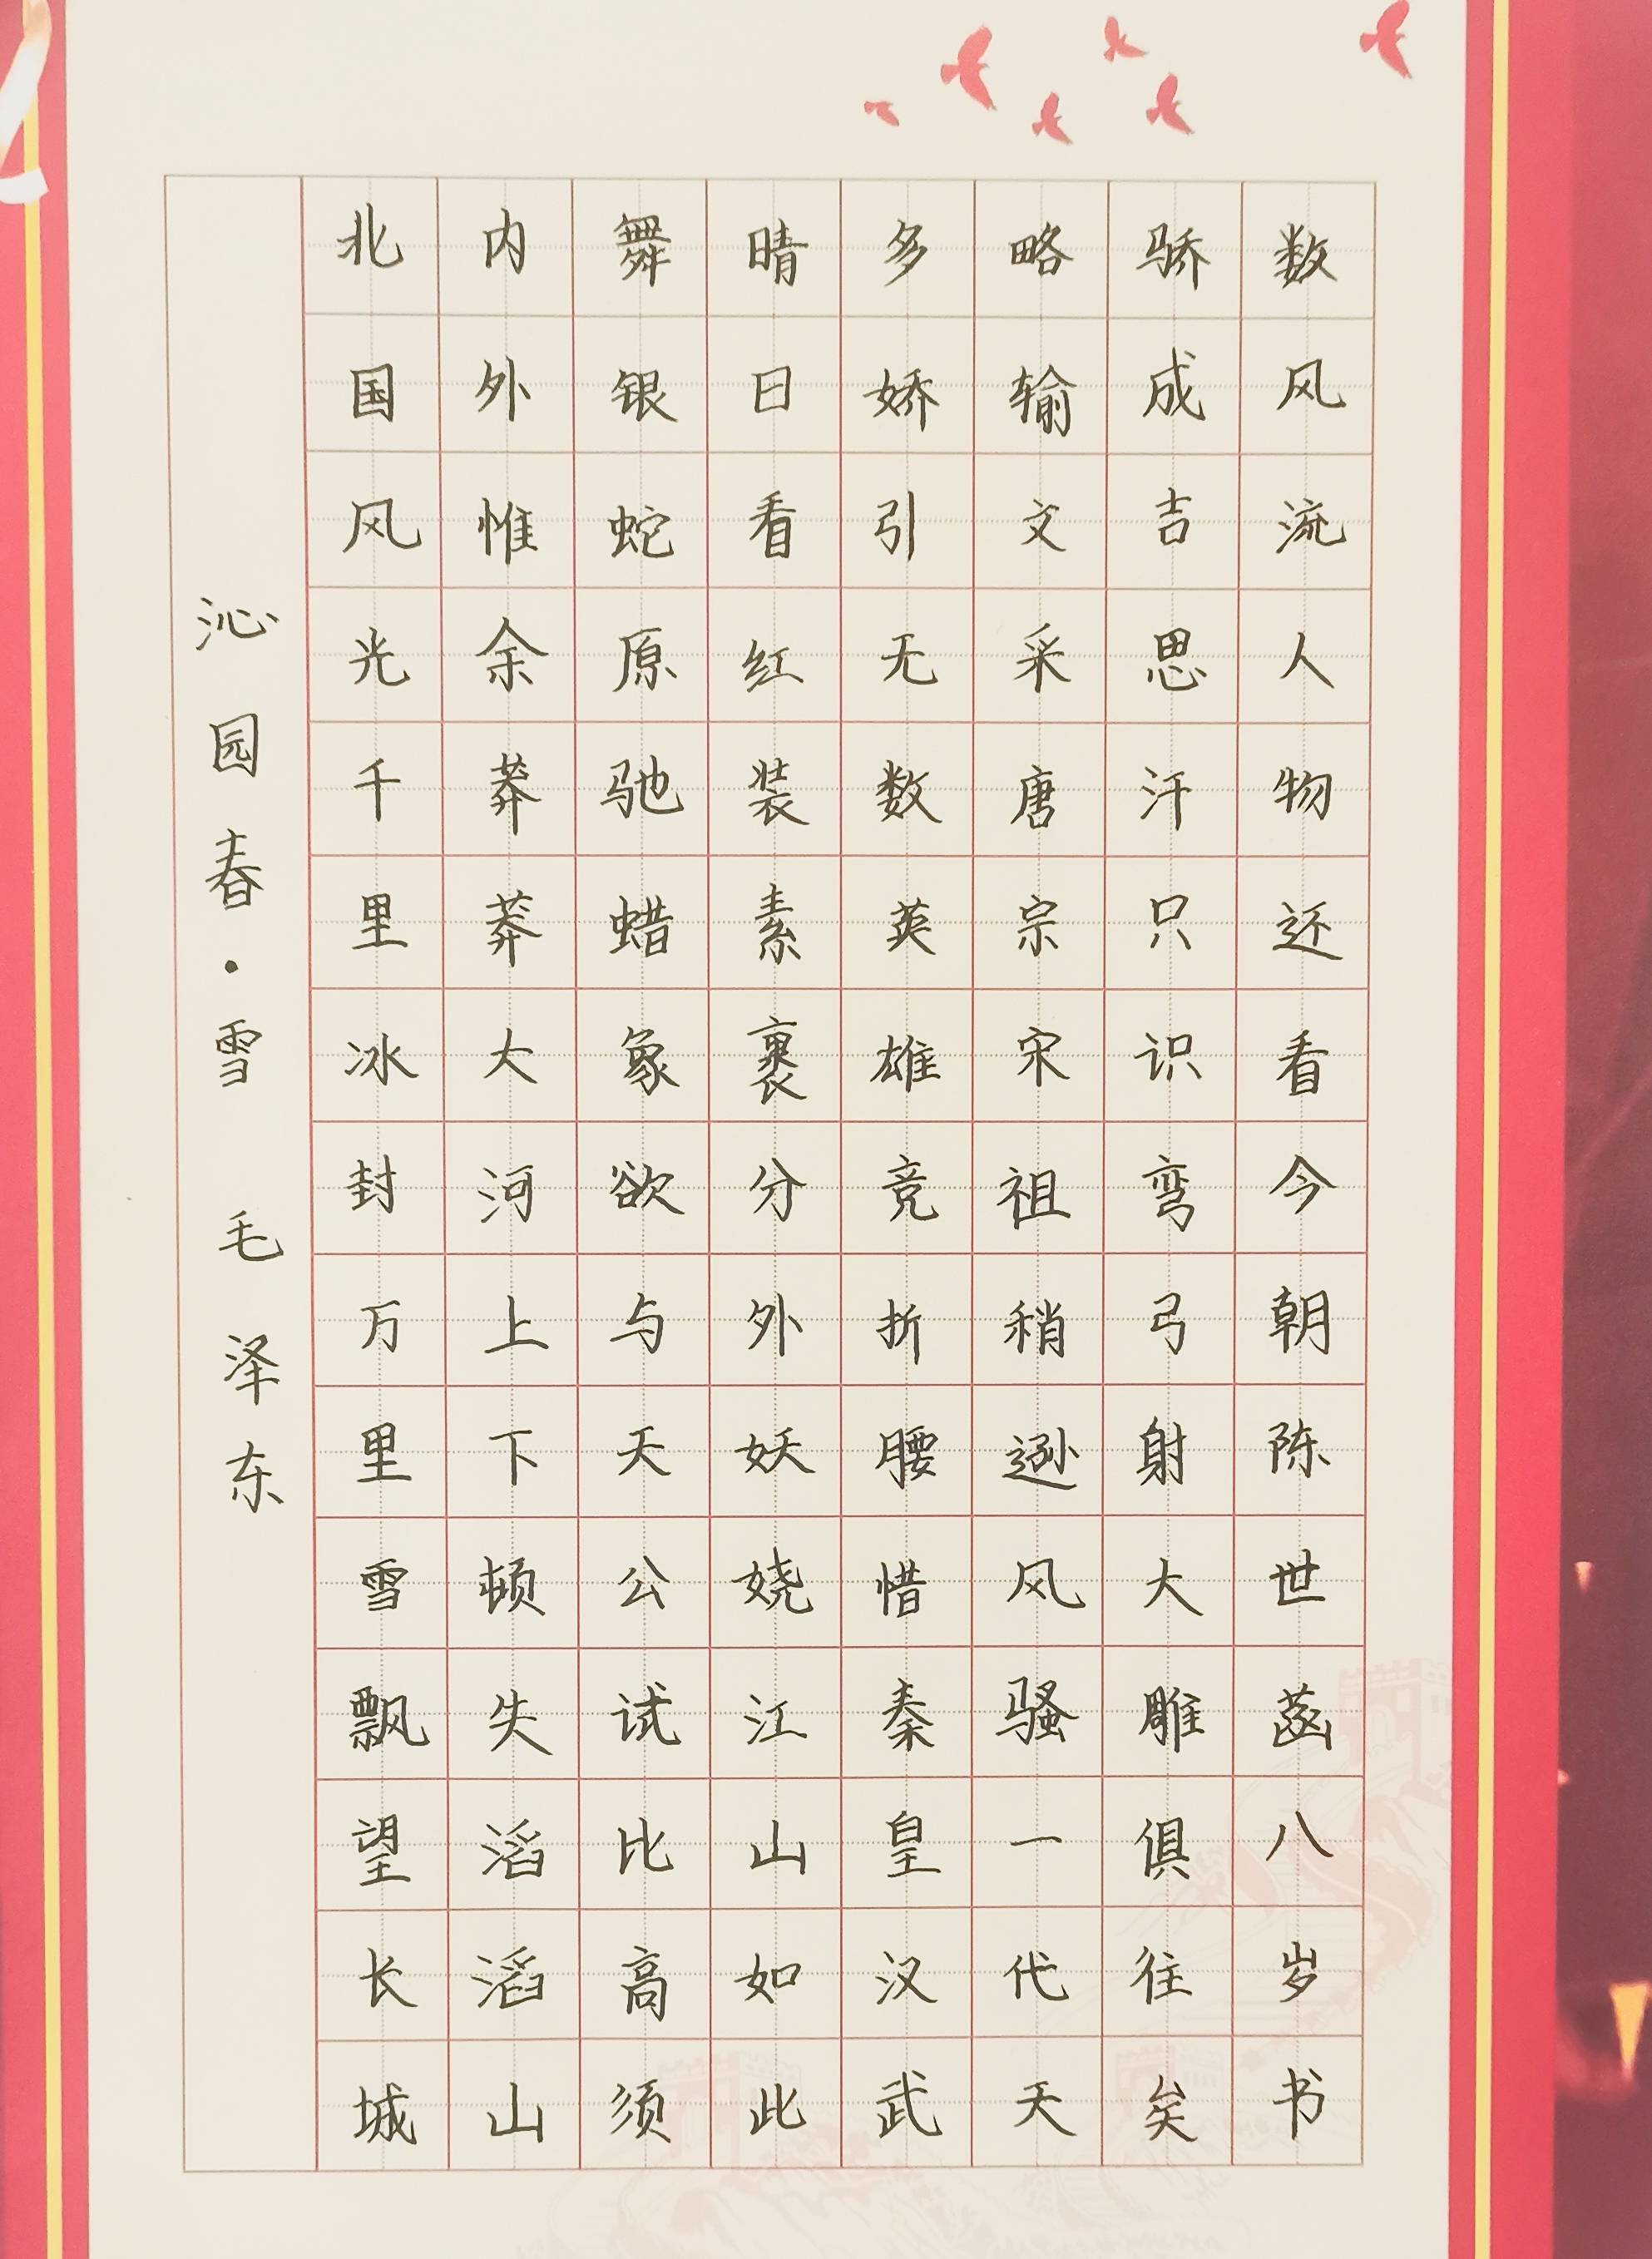 沁园春·雪 毛泽东
北国风光千里冰封万里雪飘望长城
内外惟余莽莽大河上下顿失滔滔山
舞银蛇原驰蜡象欲与天公试比高须
晴日看红装素裹分外妖娆江山如此
多娇引无数英雄竞折腰惜秦皇汉武
略输文采唐宗宋祖稍逊风骚一代天
骄成吉思汗只识弯弓射大雕俱往矣
数风流人物还看今朝陈世菡八岁书